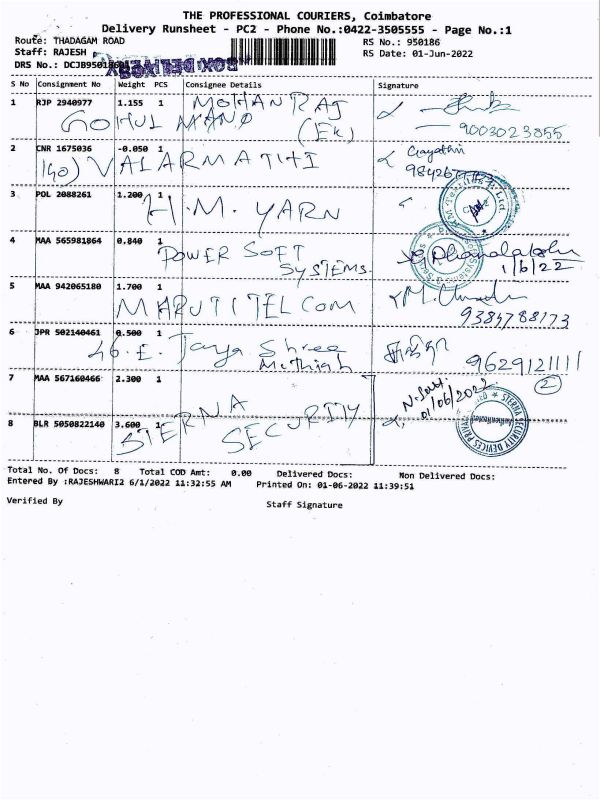 THE PROFESSIONAL COURIERS, Coimbatore
Delivery Runsheet - PC2 - Phone No.:0422-3505555 - Page No.:1
Route: THADAGAM ROAD
RS No.: 950186
Staff: RAJESH
RS Date: 01-Jun-2022
DRS No.: DCJB950186
BOX DELIVERY
S No Consignment No Weight PCS Consignee Details Signature
1 RJP 2940977 1.155 1 MOHAN RAJ
GOKUL MANO (EK) 9003023855
2 CNR 1675036 -0.050 1 Gayathri
140) VALARMATHI
3 POL 2088261 1.200 1
H.M. YARN
4 MAA 565981864 0.840 1
POWER SOFT SYSTEMS G.Dhanalakshmi
1/6/22
5 MAA 942065180 1.700 1
MARUTI TELCOM 9384788173
6 JPR 502140461 0.500 1
46.E. Jaya Shree 9629121111
7 MAA 567160466 2.300 1 01/06/2022 2
8 BLR 5050822140 3.600 1
STERNA SECURITY
STERNA SECURITY DEVICES PRIVATE LIMITED
Total No. Of Docs: 8 Total COD Amt: 0.00 Delivered Docs: Non Delivered Docs:
Entered By :RAJESHWARI2 6/1/2022 11:32:55 AM Printed On: 01-06-2022 11:39:51
Verified By
Staff Signature